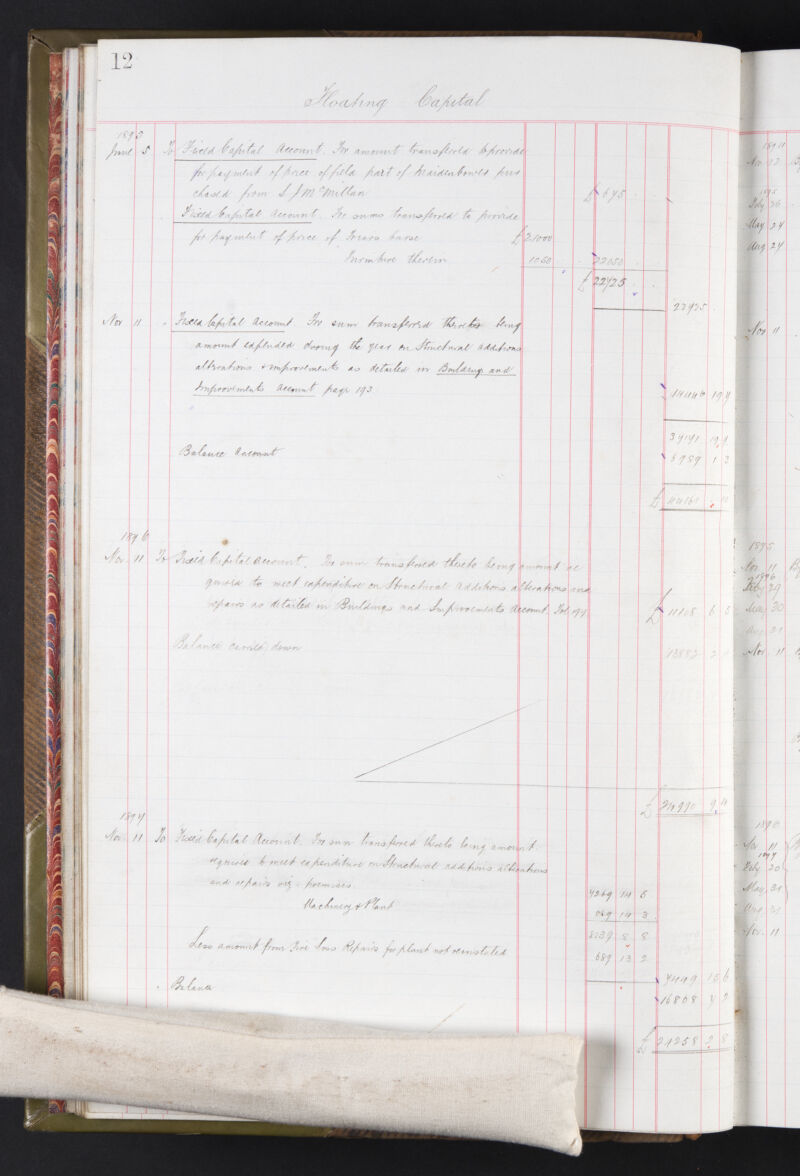 12
Floating Capital
1895
June 5 To Fixed Capital Account. For amount transferred to provide
for payment of price of field part of Maidenbower pur
chased from S J McMillan £ 675
Fixed Capital Account. For sums transferred to provide
for payment of price of house £ 21000
Furniture therein 1050 22050
£ 22725
22725
Nov 11 " Fixed Capital Account. For sum transferred thereto being
amount expended during the year on Structural additions
alterations & improvements as detailed in Building and
Improvements Account page 193
37171
Balance Account 6989 1 3
£
1896
Nov 11 To Fixed Capital Account. For sum transferred thereto being amount re
quired to meet expenditure on Structural additions alterations and
repairs as detailed in Buildings and Improvements Account. Fol 197 £ 11108 6
Balance carried down 13882 2
£ 24990 9
1897
Nov 11 To Fixed Capital Account. For sum transferred thereto being amount
required to meet expenditure on Structural additions alterations
and repairs viz premises 7269 14 5
Machinery & Plant 14 3
8139 8 8
Less amount from Fire Loss Repairs for plant not reinstated 689 13 2
7449 15 6
" Balance 16808 7 2
£ 24258 2 8
Nov 22
1895
Feby 26
May 24
Aug 24
Nov 11
1895
Nov 11 By
1896
Feby 29
May 30
Aug 31
Nov 11
1896
Nov 11
1897
Feby 20
May 31
Aug 31
Nov 11